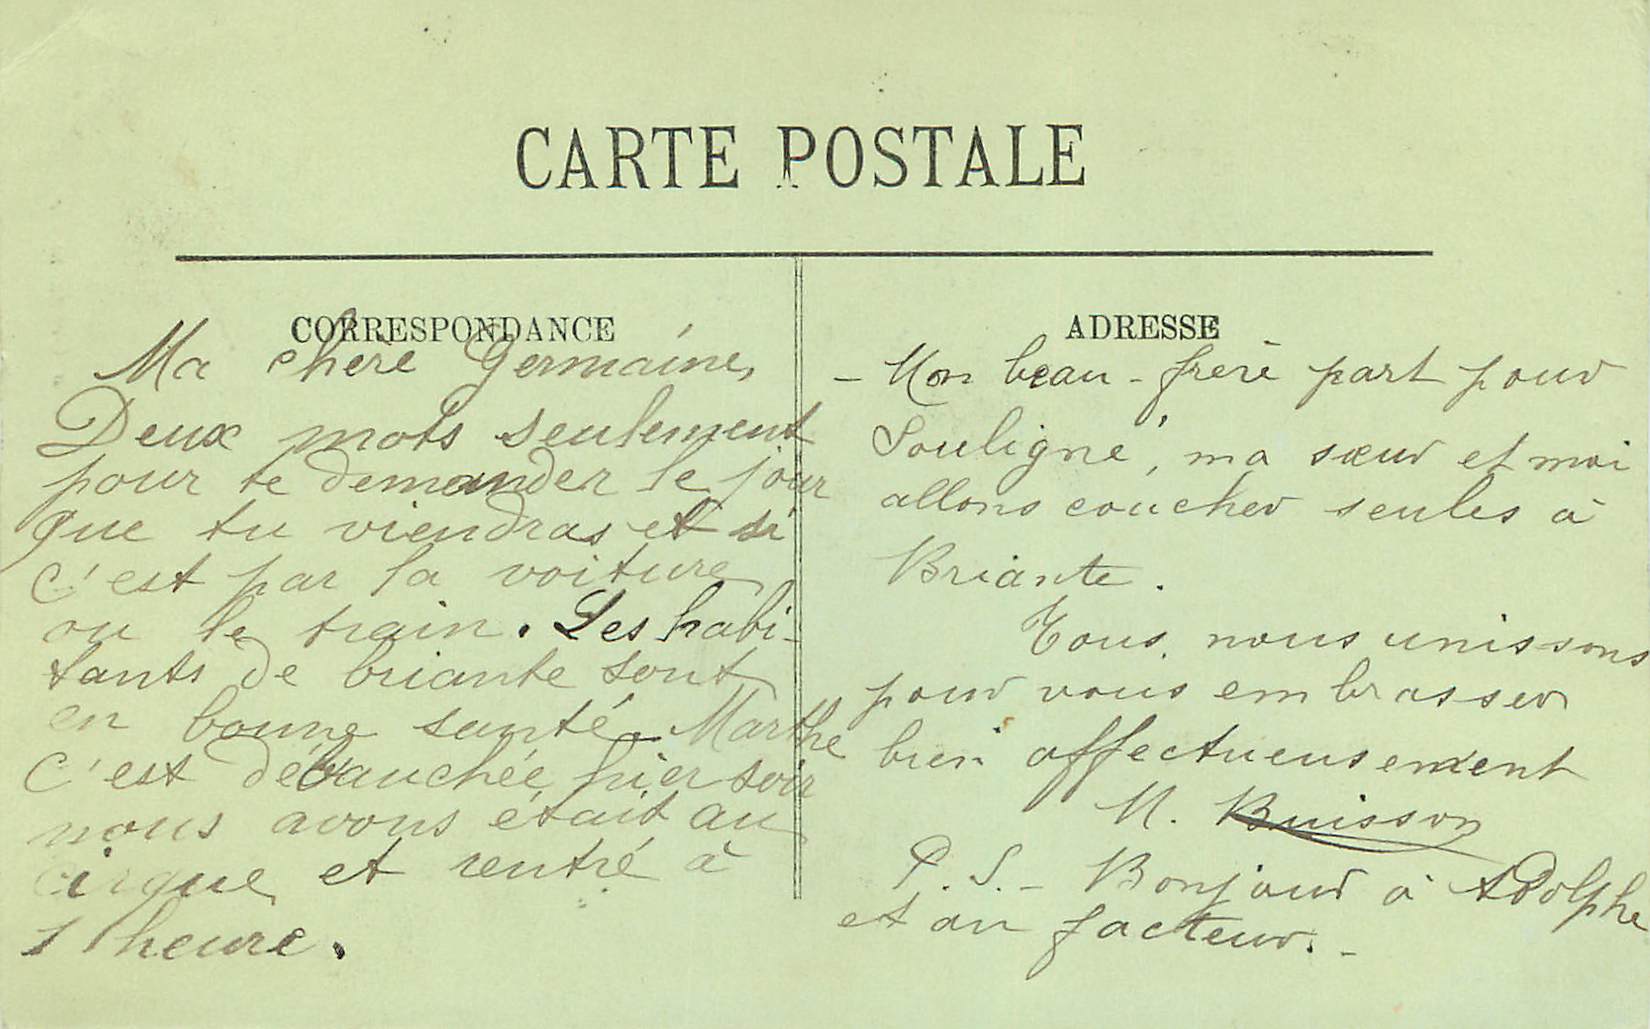 CARTE POSTALE
CORRESPONDANCE
Ma chère Germaine,
Deux mots seulement
pour te demander le jour
que tu viendras et si
c'est par la voiture
ou le train. Les habi-
tants de briante sont
en bonne santé. Marthe
c'est débauchée hier soir
nous avons était au
cirque et rentré à
1 heure.
ADRESSE
- Mon beau-frère part pour
Souligné, ma sœur et moi
allons coucher seules à
Briante.
Tous nous unissons
pour vous embrasser
bien affectueusement
M. Buisson
P.S. - Bonjour à Adolphe
et au facteur. -